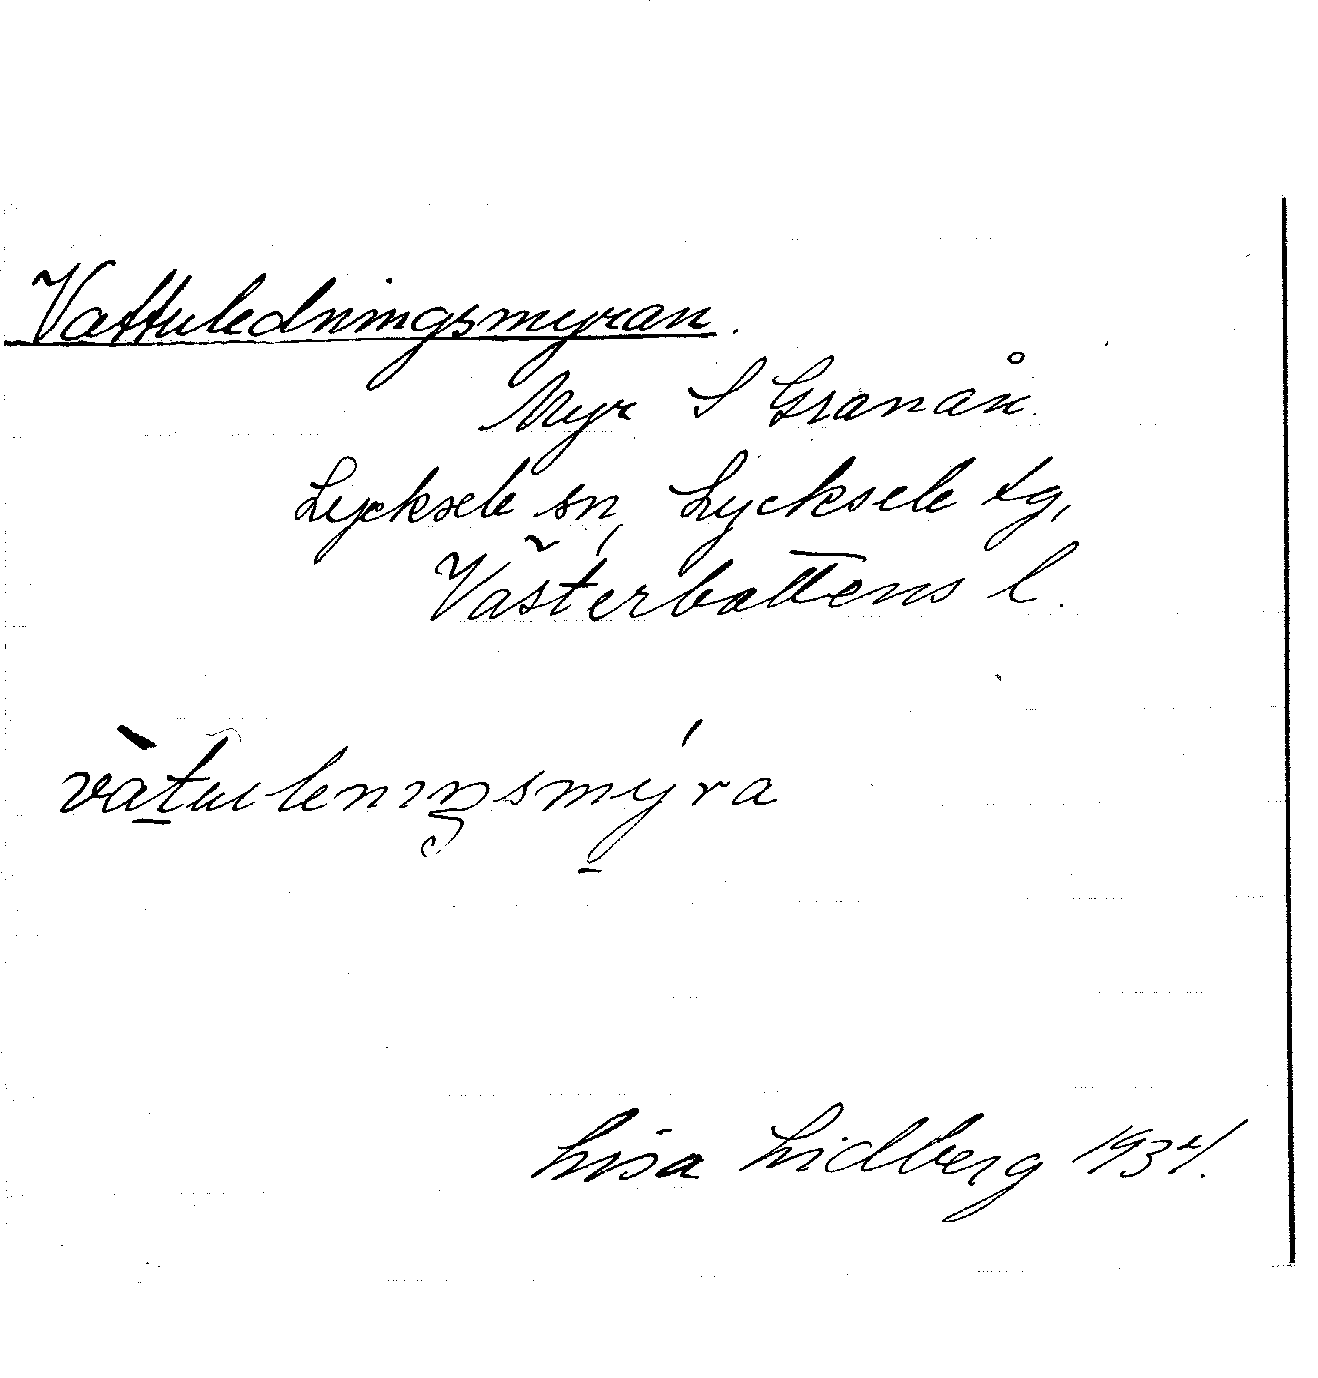 Vattuledningsmyran.
Myr S Granån.
Lycksele sn, Lycksele tg,
Västerbottens l.
vàtuleniŋsmýra
Lisa Lidberg 1934.